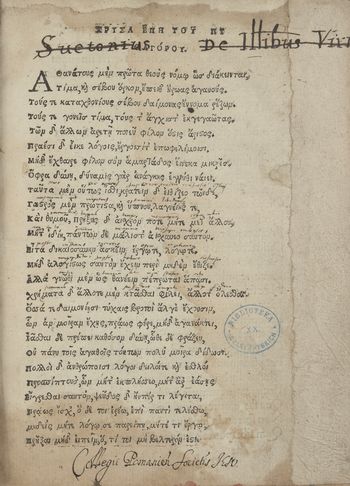 ΧΡΥΣΑ ΕΠΗ ΤΟΥ ΠΥ
Suetonius ΓΟΡΟΥ. De Illibus Viri
Αθανάτους μὲν πρῶτα θεοὺς νόμῳ ὡς διάκεινται,
τίμα, καὶ σέβου ὅρκον, ἔπειθ᾽ ἥρωας ἀγαυούς.
Τούς τε καταχθονίους σέβου δαίμονας ἔννομα ῥέζων.
τούς τε γονεῖς τίμα, τούς τ᾽ ἄγχιστ᾽ ἐκγεγαῶτας.
τῶν δ᾽ ἄλλων ἀρετῇ ποιεῦ φίλον ὅστις ἄριστος.
πραέσι δ᾽ εἶκε λόγοις, ἔργοισί τ᾽ ἐπωφελίμοισι.
μηδ᾽ ἔχθαιρε φίλον σὸν ἁμαρτάδος εἵνεκα μικρῆς.
Ὄφρα δύνῃ, δύναμις γὰρ ἀνάγκης ἐγγύθι ναίει.
ταῦτα μὲν οὕτως ἴσθι, κρατεῖν δ᾽ εἰθίζεο τῶνδε,
Γαστρὸς μὲν πρώτιστα, καὶ ὕπνου, λαγνείης τε,
Καὶ θυμοῦ, πρήξεις δ᾽ αἰσχρόν ποτε μήτε μετ᾽ ἄλλου,
Μήτ᾽ ἰδίῃ, πάντων δὲ μάλιστ᾽ αἰσχύνεο σαυτόν.
Εἶτα δικαιοσύνην ἀσκεῖν ἔργῳ τε, λόγῳ τε.
Μηδ᾽ ἀλογίστως σαυτὸν ἔχειν περὶ μηδὲν ἔθιζε.
Ἀλλὰ γνῶθι μὲν ὡς θανέειν πέπρωται ἅπασι.
χρήματα δ᾽ ἄλλοτε μὲν κτᾶσθαι φιλεῖ, ἄλλοτ᾽ ὀλέσθαι.
Ὅσα τε δαιμονίῃσι τύχαις βροτοὶ ἄλγε᾽ ἔχουσιν,
ὧν ἂν μοῖραν ἔχῃς, πράως φέρε, μηδ᾽ ἀγανάκτει,
ἰᾶσθαι δὲ πρέπει καθόσον δύνῃ, ὧδε δὲ φράζευ,
Οὐ πάνυ τοῖς ἀγαθοῖς τούτων πολὺ μοῖρα δίδωσι.
Πολλοὶ δ᾽ ἀνθρώποισι λόγοι δειλοί τε καὶ ἐσθλοὶ
προσπίπτουσ᾽, ὧν μήτ᾽ ἐκπλήσσεο, μήτ᾽ ἄρ᾽ ἐάσῃς
Εἴργεσθαι σαυτόν, ψεῦδος δ᾽ ἤνπερ τι λέγηται,
πράως ἴσχ᾽, ὃ δέ τοι ἐρέω, ἐπὶ παντὶ τελείσθω,
μηδεὶς μήτε λόγῳ σε παρείπῃ, μήτε τι ἔργῳ,
πρῆξαι μηδ᾽ εἰπεῖν, ὅ, τί τοι μὴ βέλτερόν ἐστι.
BIBLIOTECA
Collegii Romani Societis